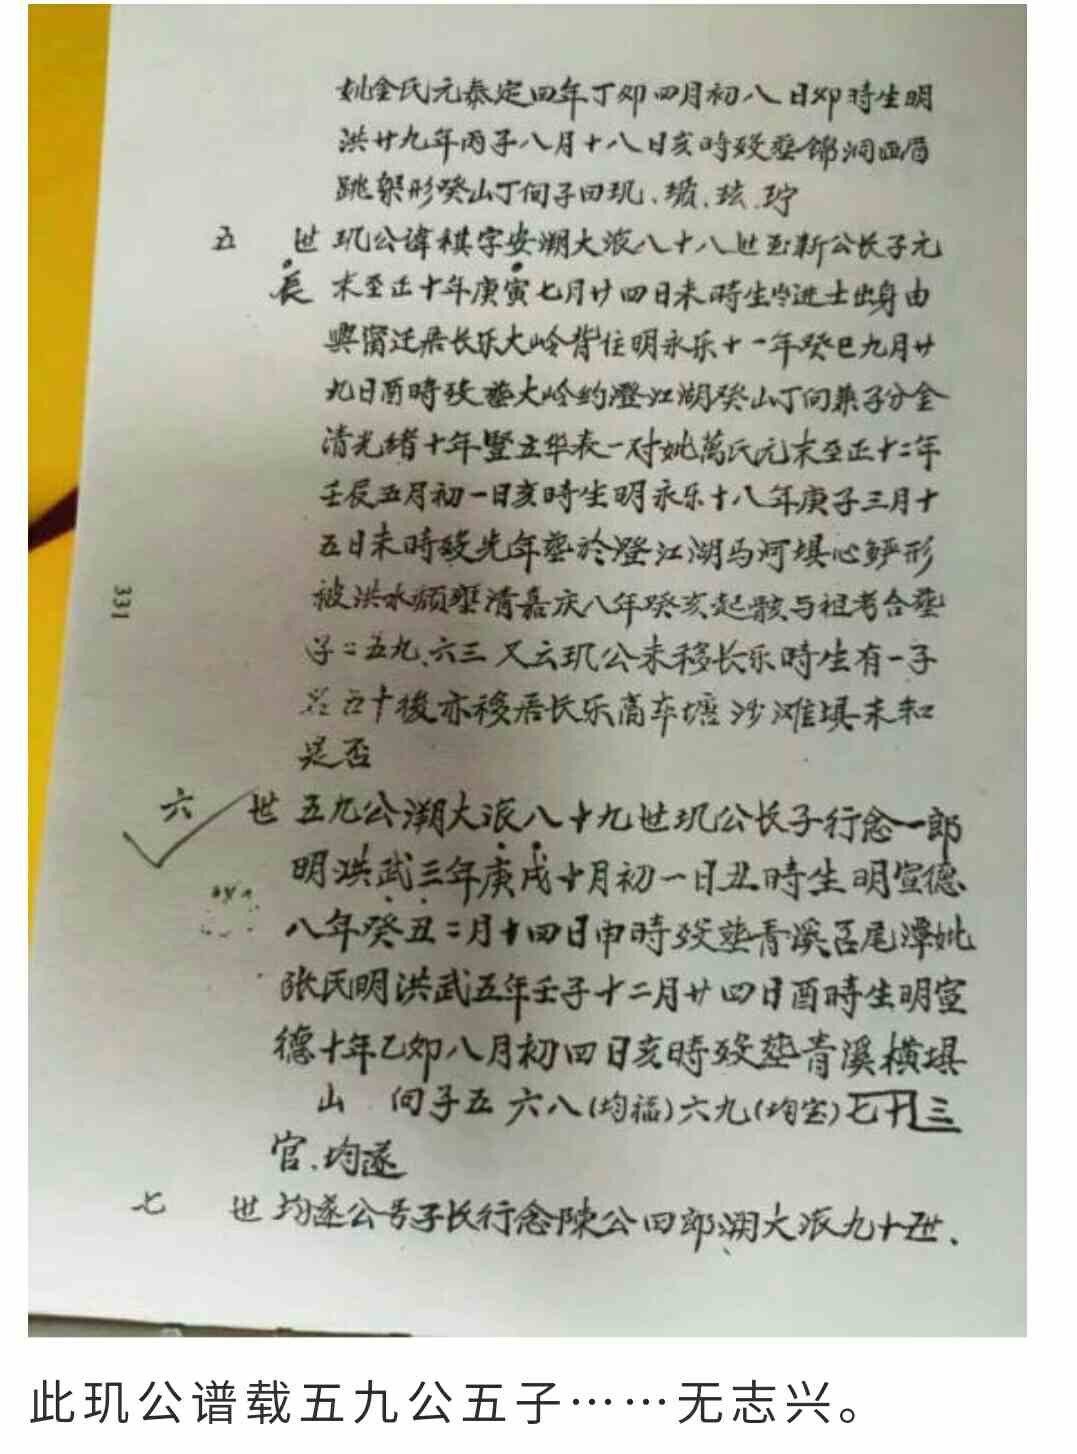 妣金氏元泰定四年丁卯四月初八日卯時生明
洪廿九年丙子八月十八日亥時殁塟錦洞西眉
跳架形癸山丁向子四玑、璸、玹、玗
五 世 玑公諱棋字安溯大派八十八世玉新公长子元
長 末至正十年庚寅七月廿四日未時生岁进士出身由
興甯迁居长乐大岭背住明永乐十一年癸巳九月廿
九日酉時殁塟大岭约澄江湖癸山丁向兼子分金
清光绪十年豎立华表一对妣萬氏元末至正十二年
壬辰五月初一日亥時生明永乐十八年庚子三月十
五日未時殁先年塟於澄江湖马河埧心鲈形
被洪水頻壓清嘉庆八年癸亥起骸与祖考合塟
子二五九、六三 又云玑公未移长乐時生有一子
五十後亦移居长乐高车塘沙滩埧未知
是否
六 世 五九公溯大派八十九世玑公长子行念一郎
明洪武三年庚戌十月初一日丑時生明宣德
八年癸丑二月十四日申時殁塟青溪呂尾潭妣
张氏明洪武五年壬子十二月廿四日酉時生明宣
德十年乙卯八月初四日亥時殁塟青溪橫埧
山 向子五 六八(均福)六九(均宝)七十三
官、均遂
七 世 均遂公号子长行念陳公四郎溯大派九十世、
331
此玑公谱载五九公五子……无志兴。